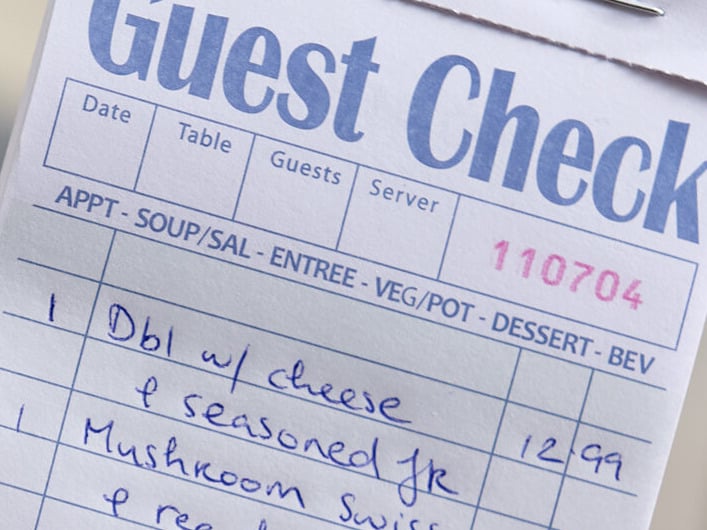 Guest Check
Date Table Guests Server 110704
APPT - SOUP/SAL - ENTREE - VEG/POT - DESSERT - BEV
1 Dbl w/ cheese
& seasoned fr 12.99
1 Mushroom Swiss
&